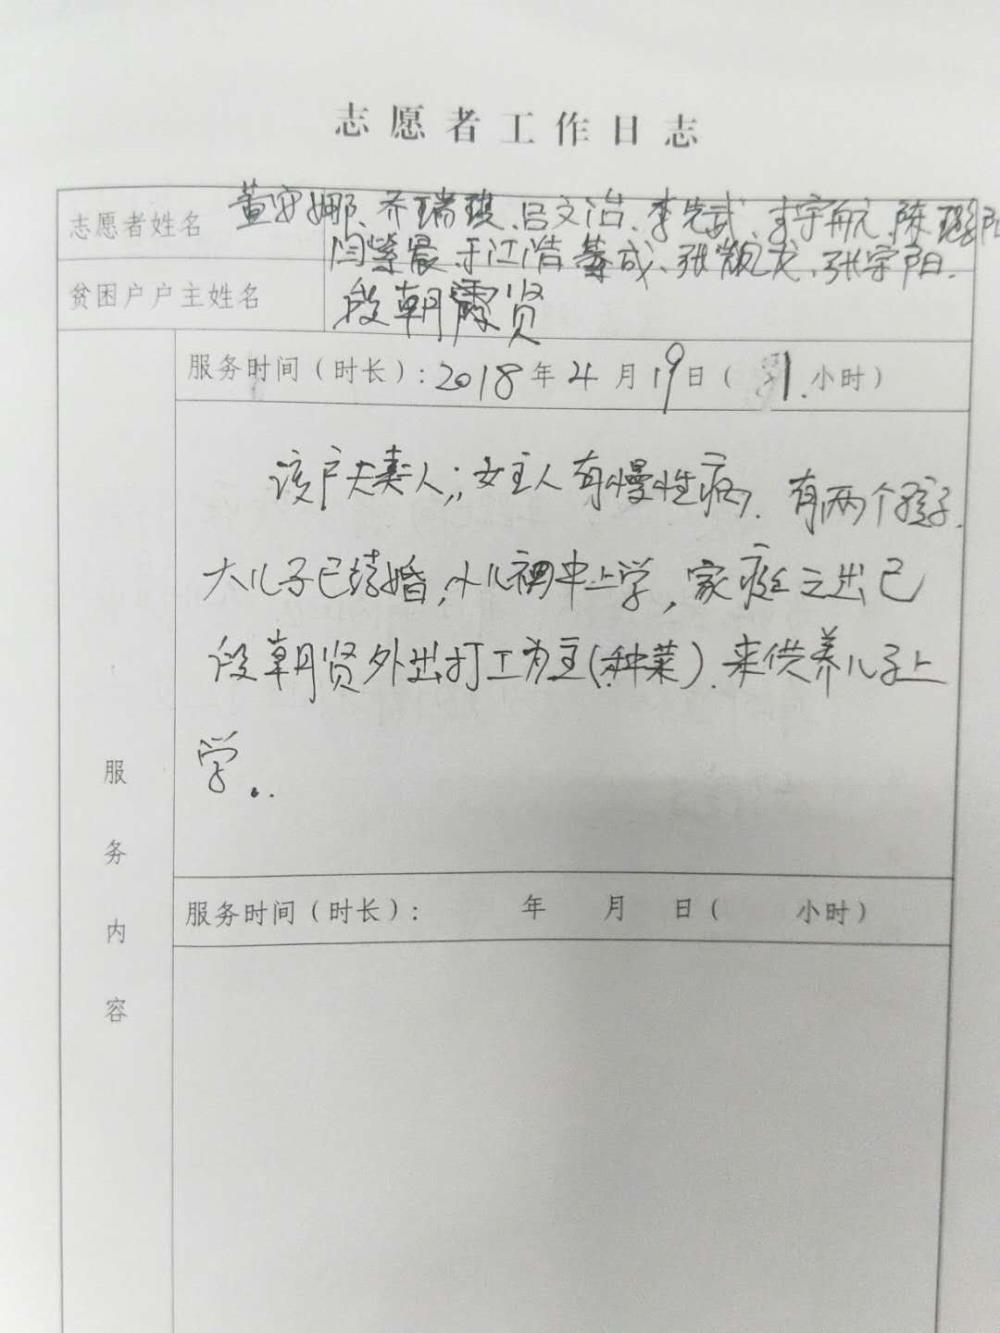 志愿者工作日志
志愿者姓名 董安娜、乔瑞琪、吕文治、李先武、李宇航、陈
闫紫宸、于江浩 成、张凯龙、张宇阳.
贫困户户主姓名 段朝贤
服务时间（时长）：2018年4月19日（1.小时）
该户夫妻人;，女主人有慢性病. 有两个孩子.
大儿子已结婚，小儿初中上学，家庭之出已
段朝贤外出打工为主(种菜).来供养儿子上
学..
服务时间（时长）： 年 月 日（ 小时）
服
务
内
容